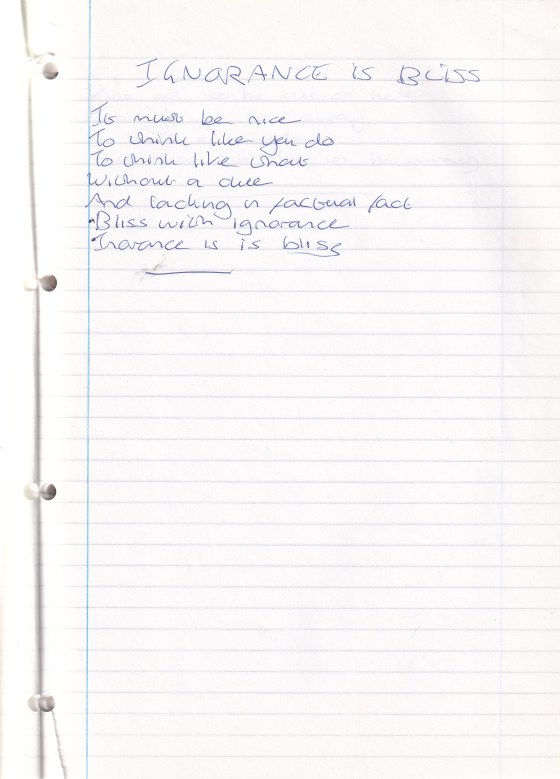 IGNORANCE IS BLISS
It must be nice
To think like you do
To think like that
Without a clue
And lacking in factual fact
Bliss with ignorance
Inorance is is bliss